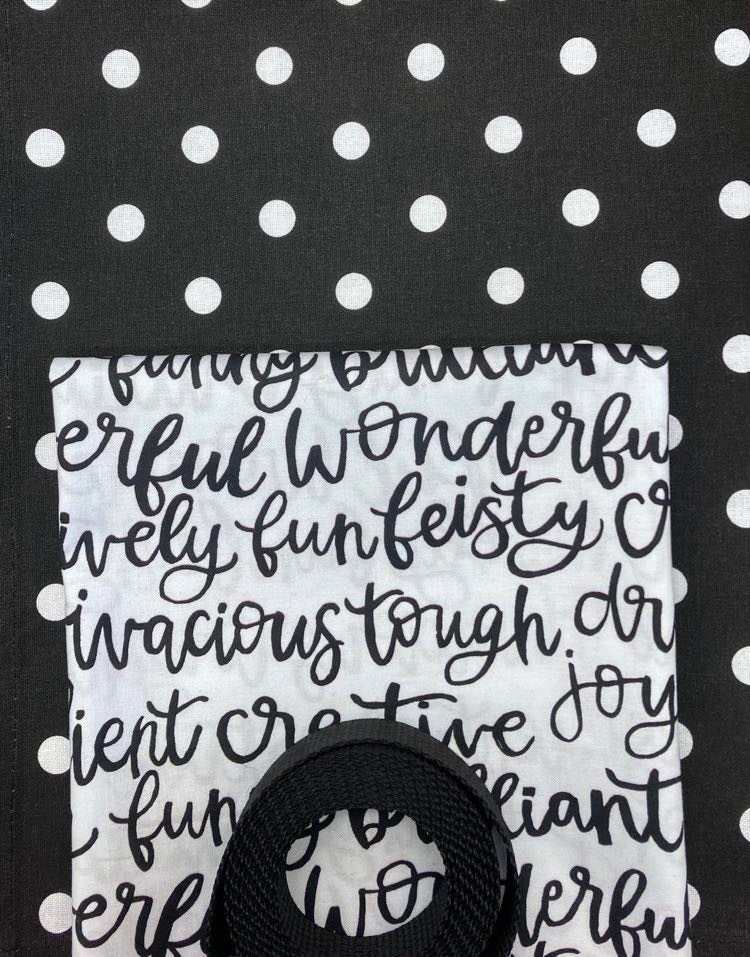 funny brilliant
erful Wonderfu
ively fun feisty
ivacious tough dr
joy
ient creative
fun brilliant
erf Wonderful